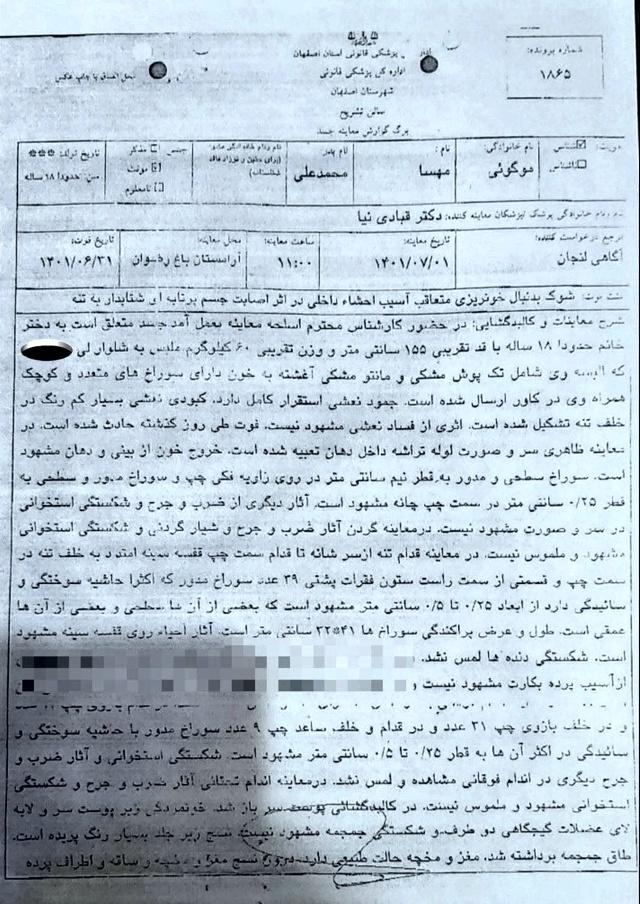 پزشکی قانونی استان اصفهان
اداره کل پزشکی قانونی
شهرستان اصفهان
سالن تشریح
برگ گزارش معاینه جسد
شماره پرونده:
۱۸۶۵
محل الصاق یا چاپ عکس
هویت: شناس ناشناس
نام خانوادگی: موگوئی
نام: مهسا
نام پدر: محمدعلی
جنس مذکر مونث نامعلوم
تاریخ تولد: ***
سن: حدودا ۱۸ ساله
نام ونام خانوادگی پزشک /پزشکان معاینه کننده: دکتر قبادی نیا
مرجع درخواست کننده: آگاهی لنجان
تاریخ معاینه: ۱۴۰۱/۰۷/۰۱
ساعت معاینه: ۱۱:۰۰
محل معاینه: آرامستان باغ رضوان
تاریخ فوت: ۱۴۰۱/۰۶/۳۱
علت فوت: شوک بدنبال خونریزی متعاقب آسیب احشاء داخلی در اثر اصابت جسم پرتابه ای شتابدار به تنه
شرح معاینات و کالبدگشایی: در حضور کارشناس محترم اسلحه معاینه بعمل آمد جسد متعلق است به دختر
خانم حدودا ۱۸ ساله با قد تقریبی ۱۵۵ سانتی متر و وزن تقریبی ۶۰ کیلوگرم ملبس به شلوار لی
که البسه وی شامل تک پوش مشکی و مانتو مشکی آغشته به خون دارای سوراخ های متعدد و کوچک
همراه وی در کاور ارسال شده است. جمود نعشی استقرار کامل دارد. کبودی نعشی بسیار کم رنگ در
خلف تنه تشکیل شده است. اثری از فساد نعشی مشهود نیست. فوت طی روز گذشته حادث شده است. در
معاینه ظاهری سر و صورت لوله تراشه داخل دهان تعبیه شده است. خروج خون از بینی و دهان مشهود
است. سوراخ سطحی و مدور به قطر نیم سانتی متر در روی زاویه فکی چپ و سوراخ مدور و سطحی به
قطر ۰/۲۵ سانتی متر در سمت چپ چانه مشهود است. آثار دیگری از ضرب و جرح و شکستگی استخوانی
در سر و صورت مشهود نیست. درمعاینه گردن آثار ضرب و جرح و شیار گردنی و شکستگی استخوانی
مشهود و ملموس نیست. در معاینه قدام تنه ازسر شانه تا قدام سمت چپ قفسه سینه امتداد به خلف تنه در
سمت چپ و قسمتی از سمت راست ستون فقرات پشتی ۳۹ عدد سوراخ مدور که اکثرا حاشیه سوختگی و
سائیدگی دارد از ابعاد ۰/۲۵ تا ۰/۵ سانتی متر مشهود است که بعضی از آن ها سطحی و بعضی از آن ها
عمقی است. طول و عرض پراکندگی سوراخ ها ۴۱*۳۲ سانتی متر است. آثار احیاء روی قفسه سینه مشهود
است. شکستگی دنده ها لمس نشد.
ازآسیب پرده بکارت مشهود نیست و
و در خلف بازوی چپ ۳۱ عدد و در قدام و خلف ساعد چپ ۹ عدد سوراخ مدور با حاشیه سوختگی و
سائیدگی در اکثر آن ها به قطر ۰/۲۵ تا ۰/۵ سانتی متر مشهود است. شکستگی استخوانی و آثار ضرب و
جرح دیگری در اندام فوقانی مشاهده و لمس نشد. درمعاینه اندام تحتانی آثار ضرب و جرح و شکستگی
استخوانی مشهود و ملموس نیست. در کالبدگشائی پوست سر باز شد. خونمردگی زیر پوست سر و لابه
لای عضلات گیجگاهی دو طرف و شکستگی جمجمه مشهود نیست نسج زیر جلد بسیار رنگ پریده است.
طاق جمجمه برداشته شد. مغز و مخچه حالت طبیعی دارد. نسج مغز و مخچه و ساقه و اطراف پرده